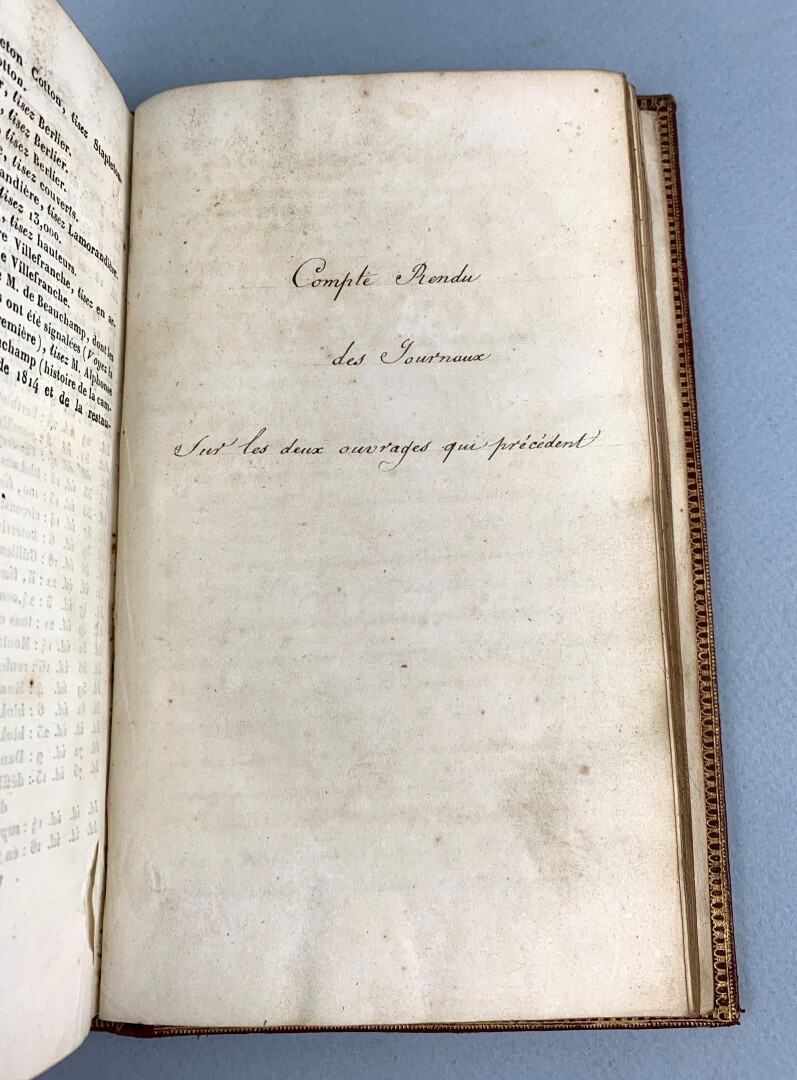 eton Cotton, lisez Stapleton
otton.
, lisez Berlier.
, lisez Berlier.
, lisez Berlier.
, lisez couverts.
andière, lisez Lamorandière.
lisez 13,000.
, lisez hauteurs.
re Villefranche, lisez en ar-
e Villefranche.
e M. de Beauchamp, dont les
s ont été signalées (Voyez la
première), lisez M. Alphonse
uchamp (histoire de la cam-
de 1814 et de la restau-
Compte Rendu
des Journaux
Sur les deux ouvrages qui précédent